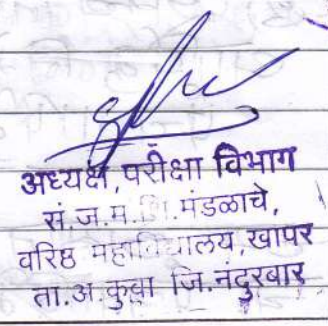 अध्यक्ष, परीक्षा विभाग
सं.ज.म.शि.मंडळाचे,
वरिष्ठ महाविद्यालय, खापर
ता.अ.कुवा जि.नंदुरबार